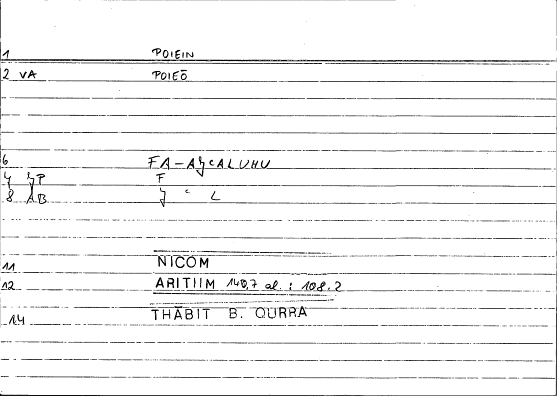 1 POIEIN
2 VA POIEŌ
6 FA-AʒcALUHU
ʒP F
8 AB ʒ c L
11 NICOM
12 ARITIIM 140,7 al. : 108.2
14 THĀBIT B. QURRA